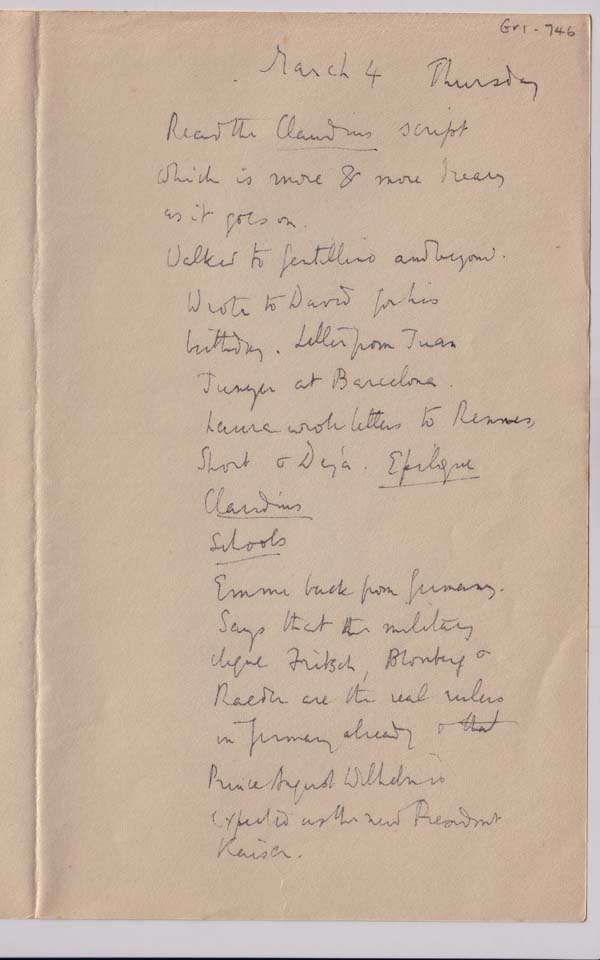 Gr1 - 746
March 4 Thursday
Read the Claudius script
which is more & more dreary
as it goes on.
Walked to Gentilino and beyond.
Wrote to David for his
birthday. Letter from Juan
Junyer at Barcelona.
Laura wrote letters to Reeves,
Short & Deya. Epilogue
Claudius
Schools
Emmy back from Germany.
Says that the military
clique Fritsch, Blomberg &
Raeder are the real rulers
in Germany already & that
Prince August Wilhelm is
expected as the new President
Kaiser.